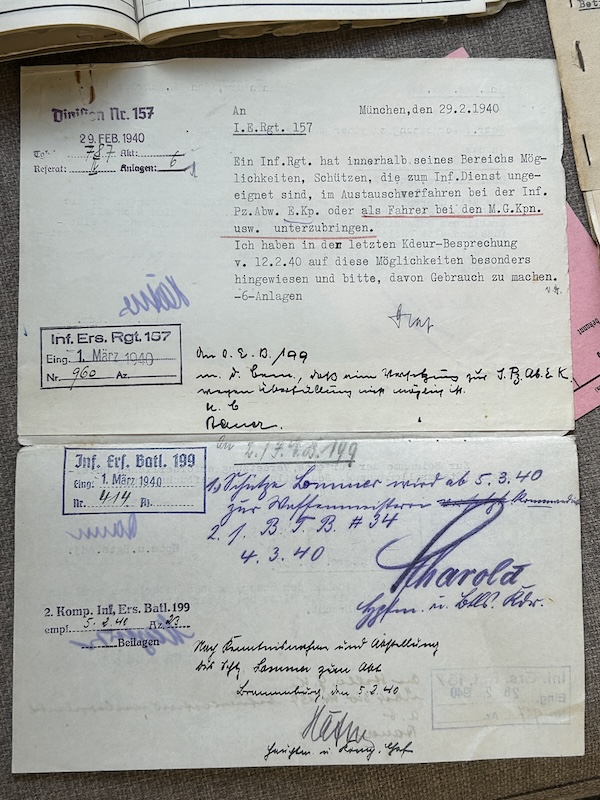 Division Nr. 157
29. FEB. 1940
787 Akt:
Referat: Anlagen: 6
An München, den 29.2.1940
I.E.Rgt. 157
Ein Inf.Rgt. hat innerhalb seines Bereichs Mög-
lichkeiten, Schützen, die zum Inf.Dienst unge-
eignet sind, im Austauschverfahren bei der Inf.
Pz.Abw. E.Kp. oder als Fahrer bei den M.G.Kpn.
usw. unterzubringen.
Ich haben in der letzten Kdeur-Besprechung
v. 12.2.40 auf diese Möglichkeiten besonders
hingewiesen und bitte, davon Gebrauch zu machen.
-6-Anlagen
Graf
Inf. Ers. Rgt. 157
Eing. 1. März 1940
Nr. 960 Az.
199
m. d. Bem., daß eine Versetzung zur
wegen Überfüllung nicht möglich ist.
Inf. Ers. Batl. 199
Eing: 1. März 1940
Nr. 414 Ab.
199
1.) Schütze Lommer wird ab 5.3.40
zur Waffenmeisterei
2.
4.3.40
Hptm. u. Btls. Kdr.
2. Komp. Inf. Ers. Batl. 199
empf. 5.2.40 Az. 23
Beilagen
Nach Kenntnisnahme und Abstellung
des Schtz. Lommer zum Akt
Brannenburg, den 5.2.40
Hauptm. u. Komp. Chef